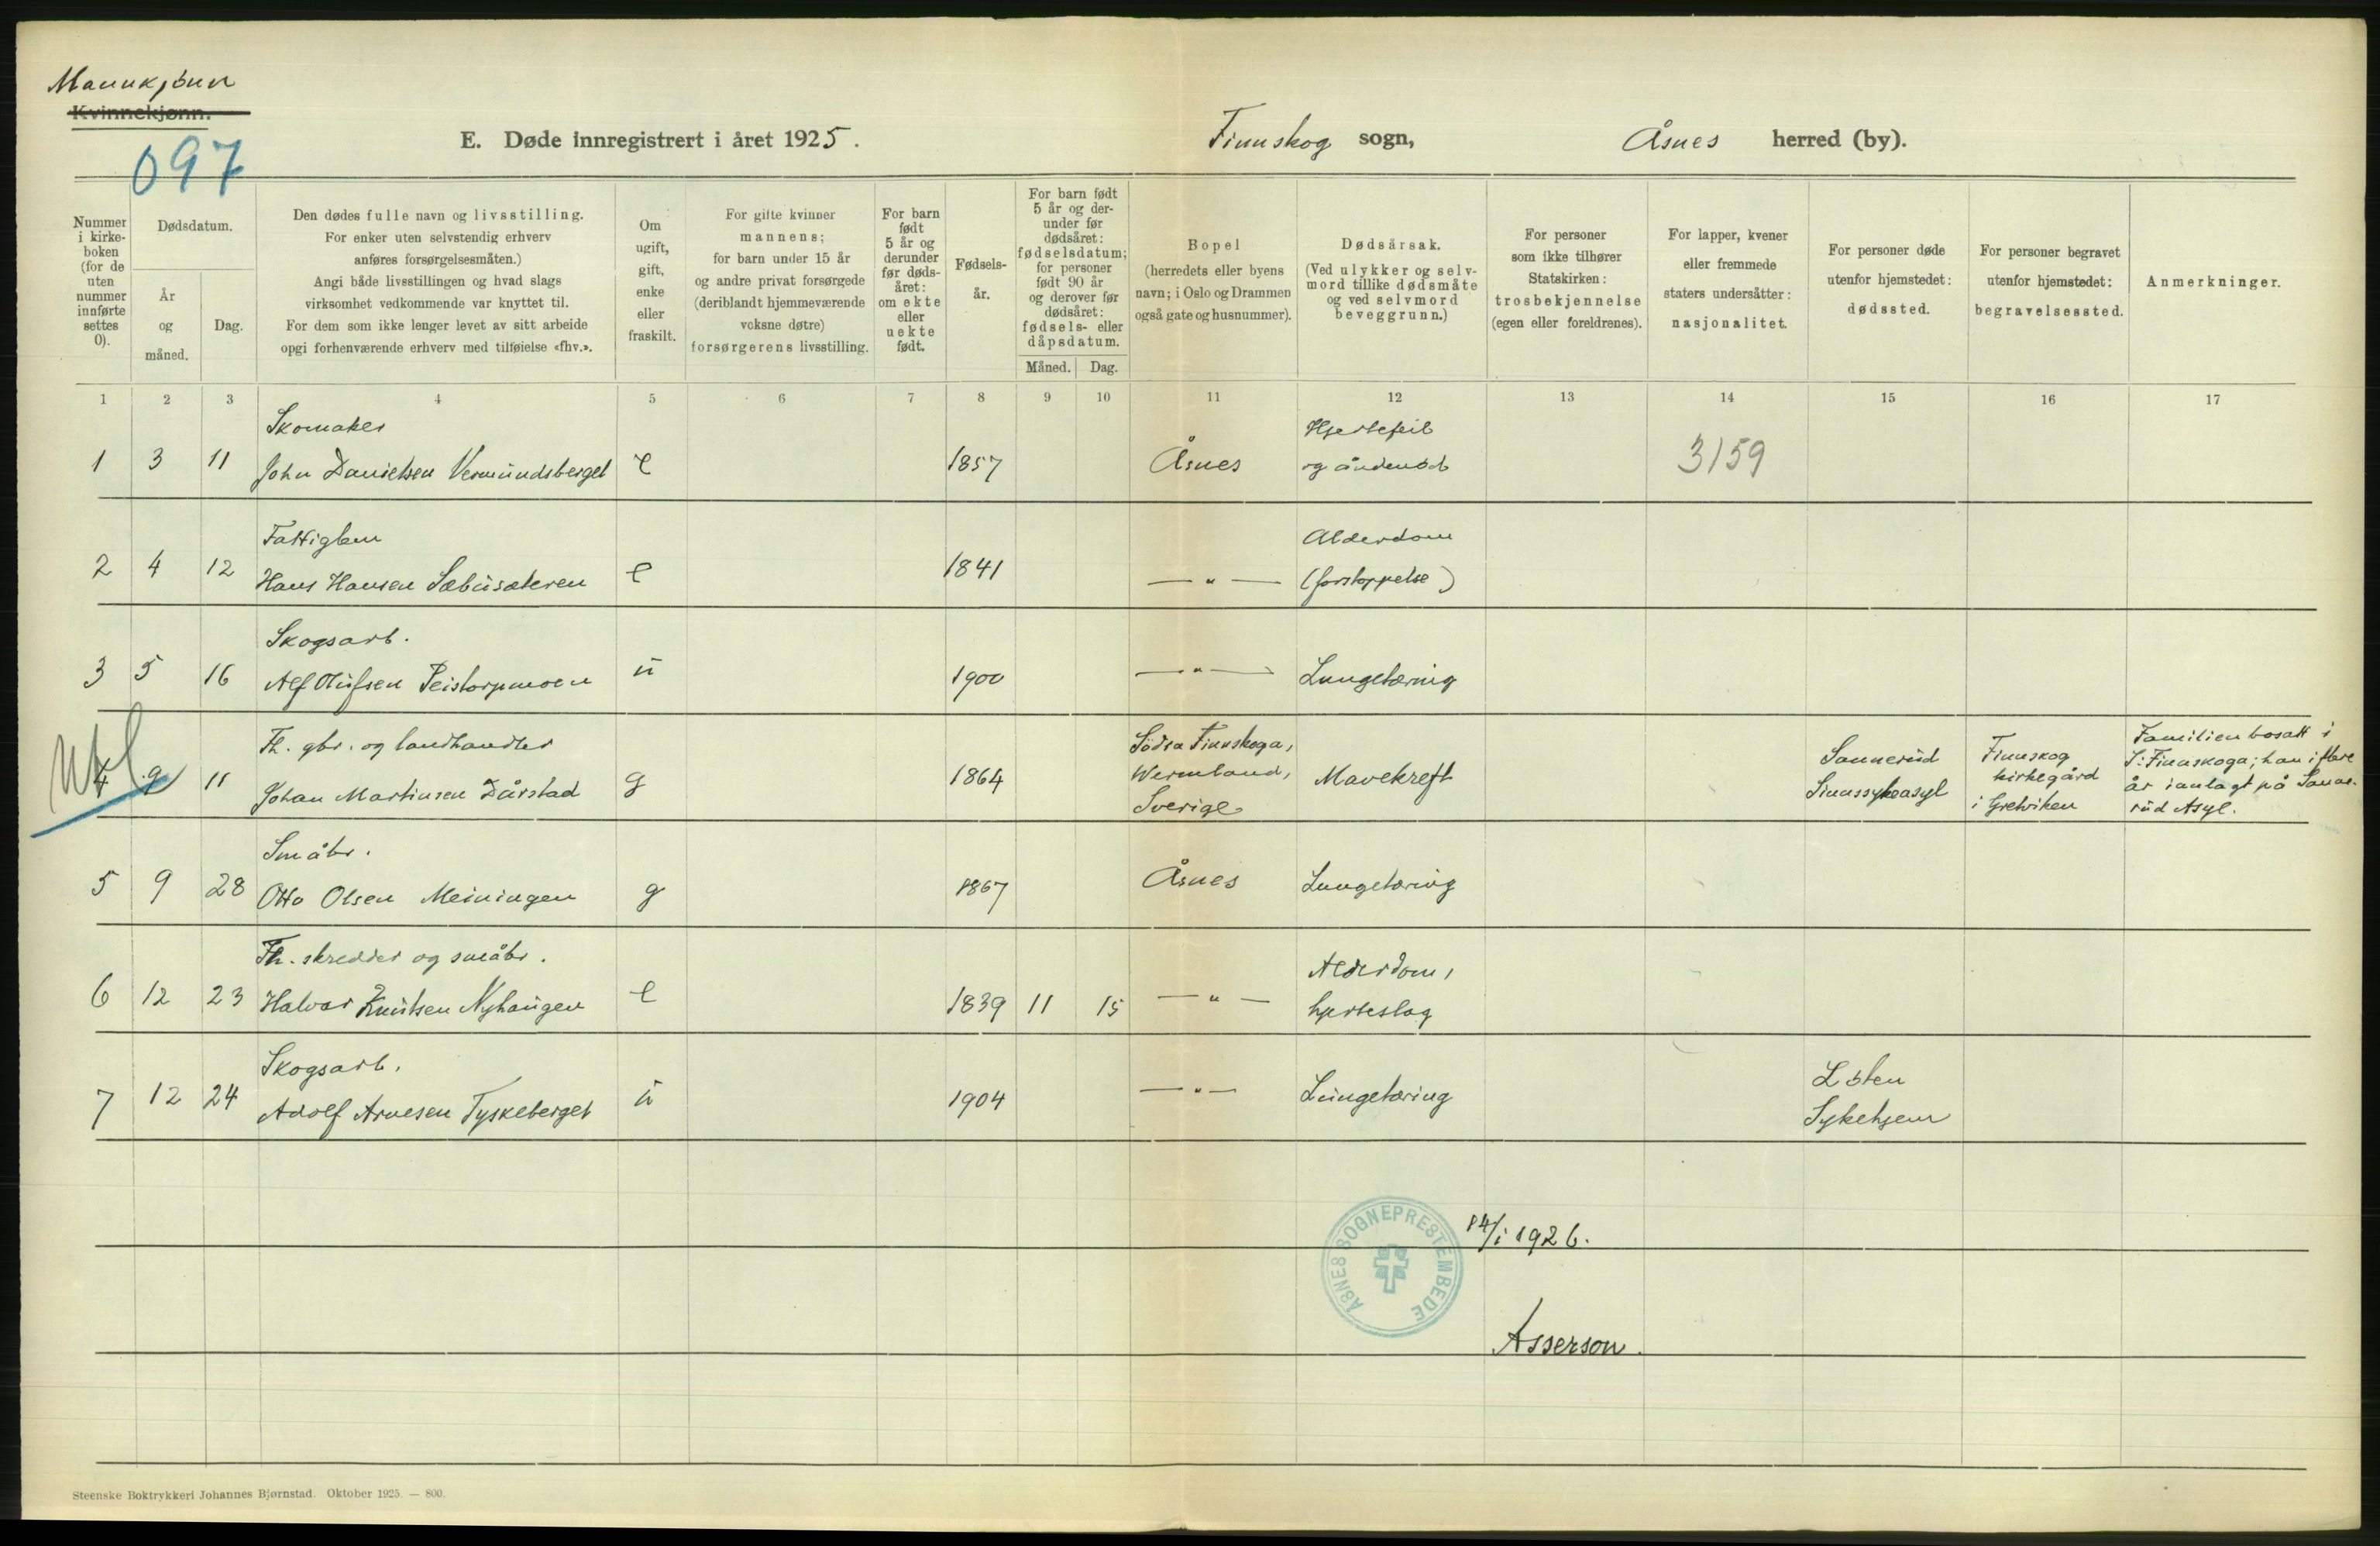 Mannkjønn
Kvinnekjønn.
097
E. Døde innregistrert i året 1925. Finnskog sogn, Åsnes herred (by).
Nummer i kirkeboken (for de uten nummer innførte settes 0).
Dødsdatum.
År og måned.
Dag.
Den dødes fulle navn og livsstilling.
For enker uten selvstendig erhverv
anføres forsørgelsesmåten.)
Angi både livsstillingen og hvad slags
virksomhet vedkommende var knyttet til.
For dem som ikke lenger levet av sitt arbeide
opgi forhenværende erhverv med tilføielse «fhv.».
Om ugift, gift, enke eller fraskilt.
For gifte kvinner
mannens;
for barn under 15 år
og andre privat forsørgede
(deriblandt hjemmeværende
voksne døtre)
forsørgerens livsstilling.
For barn født 5 år og derunder før dødsåret: om ekte eller uekte født.
Fødselsår.
For barn født
5 år og derunder før
dødsåret:
fødselsdatum;
for personer
født 90 år
og derover før
dødsåret:
fødsels- eller
dåpsdatum.
Måned. Dag.
Bopel
(herredets eller byens
navn; i Oslo og Drammen
også gate og husnummer).
Dødsårsak.
(Ved ulykker og selvmord tillike dødsmåte
og ved selvmord
beveggrunn.)
For personer
som ikke tilhører
Statskirken:
trosbekjennelse
(egen eller foreldrenes).
For lapper, kvener
eller fremmede
staters undersåtter:
nasjonalitet.
For personer døde
utenfor hjemstedet:
dødssted.
For personer begravet
utenfor hjemstedet:
begravelsessted.
Anmerkninger.
1 2 3 4 5 6 7 8 9 10 11 12 13 14 15 16 17
Skomaker Hjertefeil
1 3 11 John Danielsen Vermundsberget e 1857 Åsnes og åndenød 3159
Fattiglem Alderdom
2 4 12 Hans Hansen Sæbusæteren e 1841 —"— (forstoppelse)
Skogsarb.
3 5 16 Alf Olufsen Peistorpmoen u 1900 —"— Lungetæring
Utl
Fh. gbr. og landhandler Södra Finnskoga, Familien bosatt i
4 9 11 Johan Martinsen Dårstad g 1864 Wermland, Mavekreft Sannerud Finnskog S: Finnskoga; han i flere
Sverige Sinnssykeasyl kirkegård år innlagt på Sanne-
i Gretviken rud Asyl.
Småbr.
5 9 28 Otto Olsen Meiningen g 1867 Åsnes Lungetæring
Fh. skredder og småbr. Alderdom,
6 12 23 Halvor Knutsen Nyhaugen e 1839 11 15 —"— hjerteslag
Skogsarb. Løten
7 12 24 Adolf Arnesen Tyskeberget u 1904 —"— Lungetæring Sykehjem
ÅSNES SOGNEPRESTEMBEDE
14/1 1926.
Asserson.
Steenske Boktrykkeri Johannes Bjørnstad. Oktober 1925. — 800.